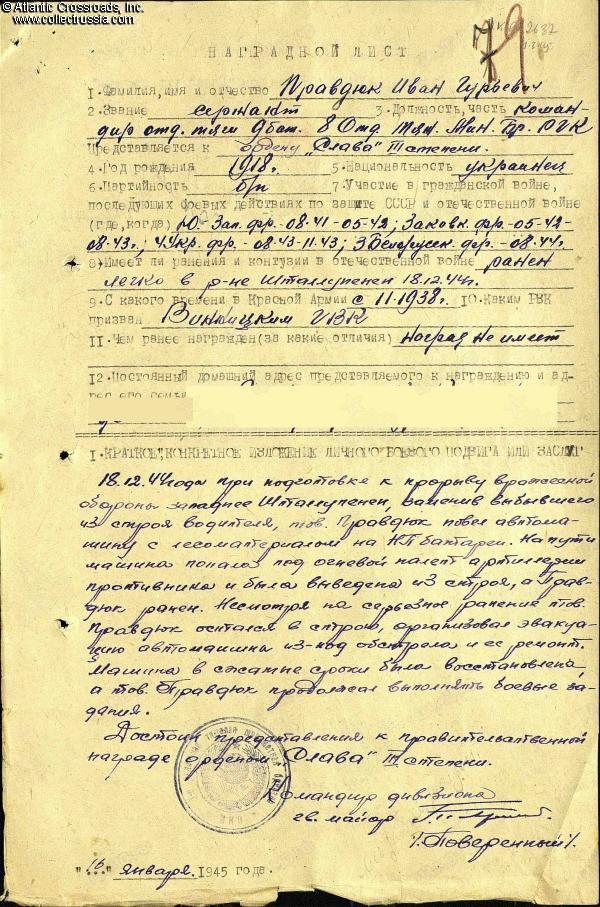 © Atlantic Crossroads, Inc.
www.collectrussia.com
79
2637
НАГРАДНОЙ ЛИСТ
1. Фамилия, имя и отчество Правдюк Иван Гурьевич
2. Звание сержант 3. Должность, часть коман-
дир отд. тяги 9 бат. 8 Отд. Тяж. Мин. Бр. РГК
Представляется к ордену „Слава" III степени.
4. Год рождения 1918 г. 5. Национальность украинец
6. Партийность б/п 7. Участие в гражданской войне,
последующих боевых действиях по защите СССР и отечественной войне
(где, когда) Ю.-Зап. фр. - 08.41 - 05.42; Закавк. фр. - 05.42-
08.43 г.; 4 Укр. фр. - 08.43-11.43; 3 Белорусск. фр. - 08.44 г.
8) Имеет ли ранения и контузии в отечественной войне ранен
легко в р-не Шталлупенен 18.12.44 г.
9. С какого времени в Красной Армии с 11.1938 г. 10. Каким РВК
призван Винницким ГВК
11. Чем ранее награжден (за какие отличия) наград не имеет
12. Постоянный домашний адрес представляемого к награждению и ад-
рес его семьи
1. КРАТКОЕ, КОНКРЕТНОЕ ИЗЛОЖЕНИЕ ЛИЧНОГО БОЕВОГО ПОДВИГА ИЛИ ЗАСЛУГ
18.12.44 года при подготовке к прорыву вражеской
обороны западнее Шталлупенен, заменив выбывшего
из строя водителя, тов. Правдюк повел автома-
шину с лесоматериалом на НП батареи. На пути
машина попала под огневой налет артиллерии
противника и была выведена из строя, а Прав-
дюк ранен. Несмотря на серьезное ранение тов.
Правдюк остался в строю, организовал эвакуа-
цию автомашины из-под обстрела и ее ремонт.
Машина в сжатые сроки была восстановлена,
а тов. Правдюк продолжал выполнять боевые за-
дания.
Достоин представления к правительственной
награде орденом „Слава" III степени.
Командир дивизиона
гв. майор
/Поверенный/.
"16" января 1945 года.